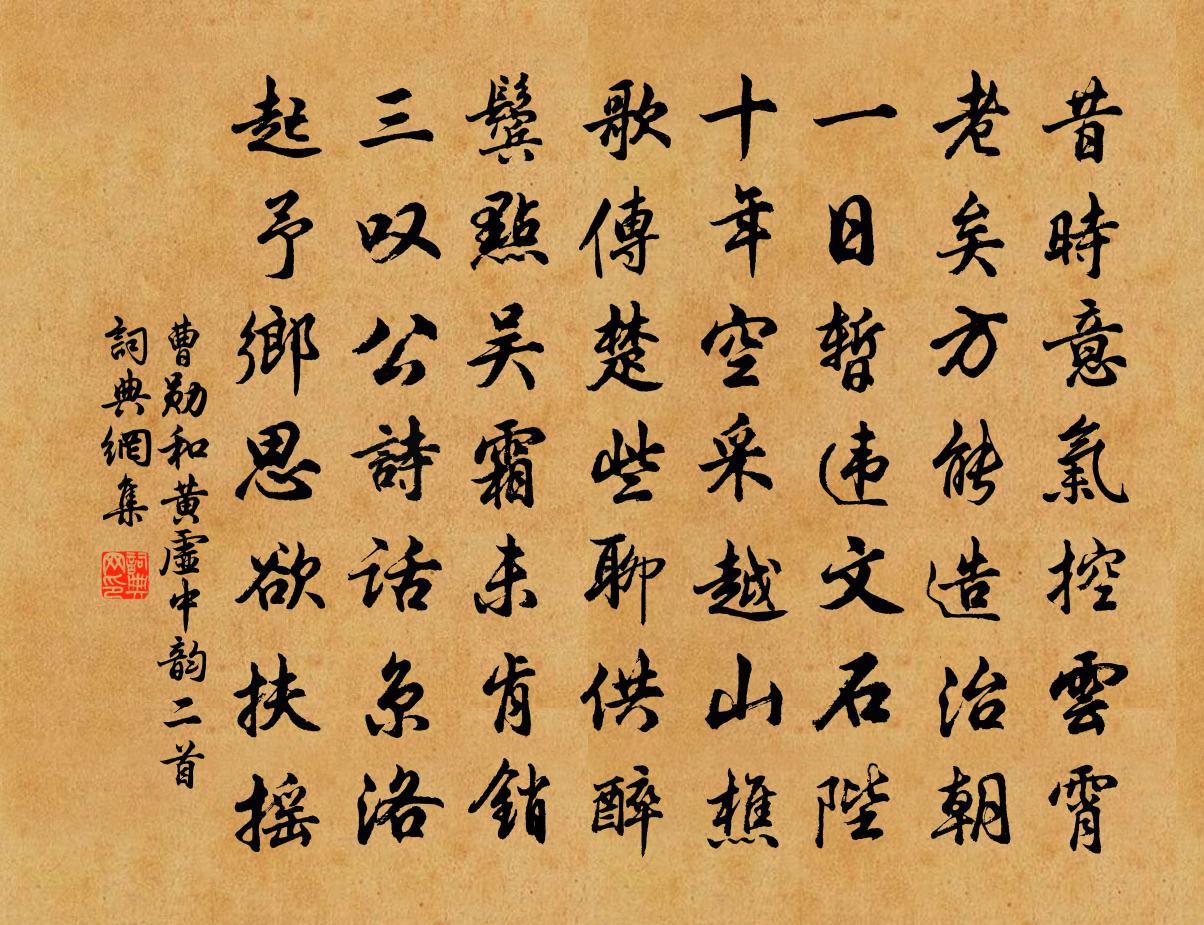 昔時意氣控雲霄
老矣方能造治朝
一日暫违文石陛
十年空采越山樵
歌傳楚些聊供醉
鬓點吴霜未肯銷
三叹公詩話京洛
起予鄉思欲扶摇
曹勛和黄虛中韵二首
詞典網集
詞典网印